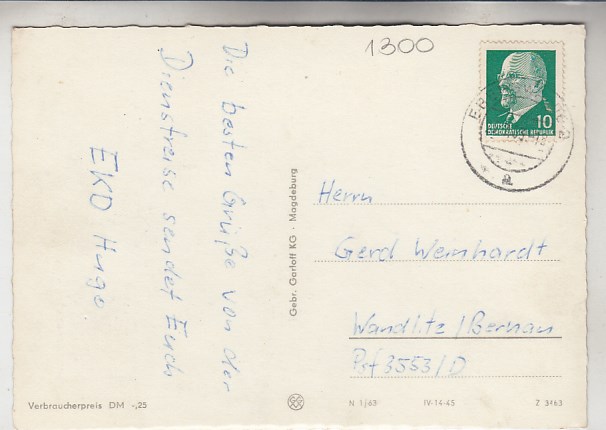 1300
Die besten Grüße von der
Dienstreise sendet Euch
EKD Hugo
Gebr. Garloff KG · Magdeburg
DEUTSCHE
DEMOKRATISCHE REPUBLIK
10
a
Herrn
Gerd Weinhardt
Wandlitz/Bernau
Psf 3553/D
Verbraucherpreis DM -,25
N 1/63
IV-14-45
Z 3163